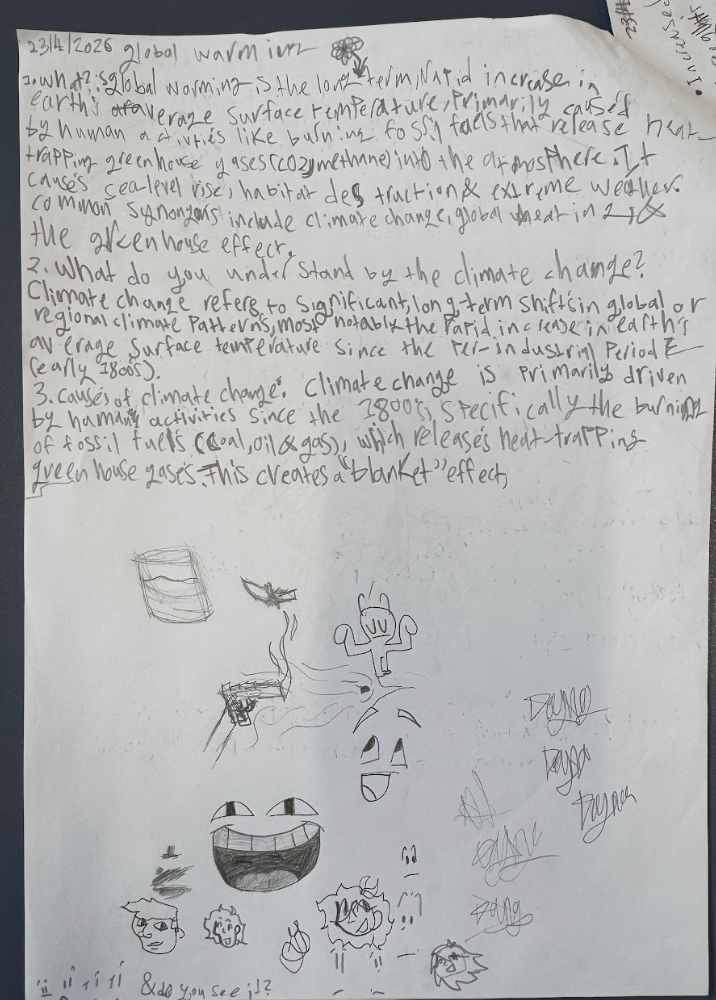 23/4/2026 global warming
1. what? is global warming is the long term, Rapid increase in
earth's average surface temperature, Primarily caused
by human activities like burning fossil fuels that release heat-
trapping greenhouse gases (CO2, methane) into the atmosphere. It
causes sea-level rise, habitat destruction & extreme weather.
common synonyms include climate change, global heating, &
the greenhouse effect.
2. What do you understand by the climate change?
Climate change refers to significant, long-term shifts in global or
regional climate Patterns, most notably the rapid increase in earth's
average surface temperature since the Per-industrial Period
(early 1800s).
3. causes of climate change: Climate change is Primarily driven
by human activities since the 1800s, specifically the burning
of fossil fuels (coal, oil & gas), which releases heat-trapping
green house gases. This creates a "blanket" effect,
& do you see it?
Increased
23/4